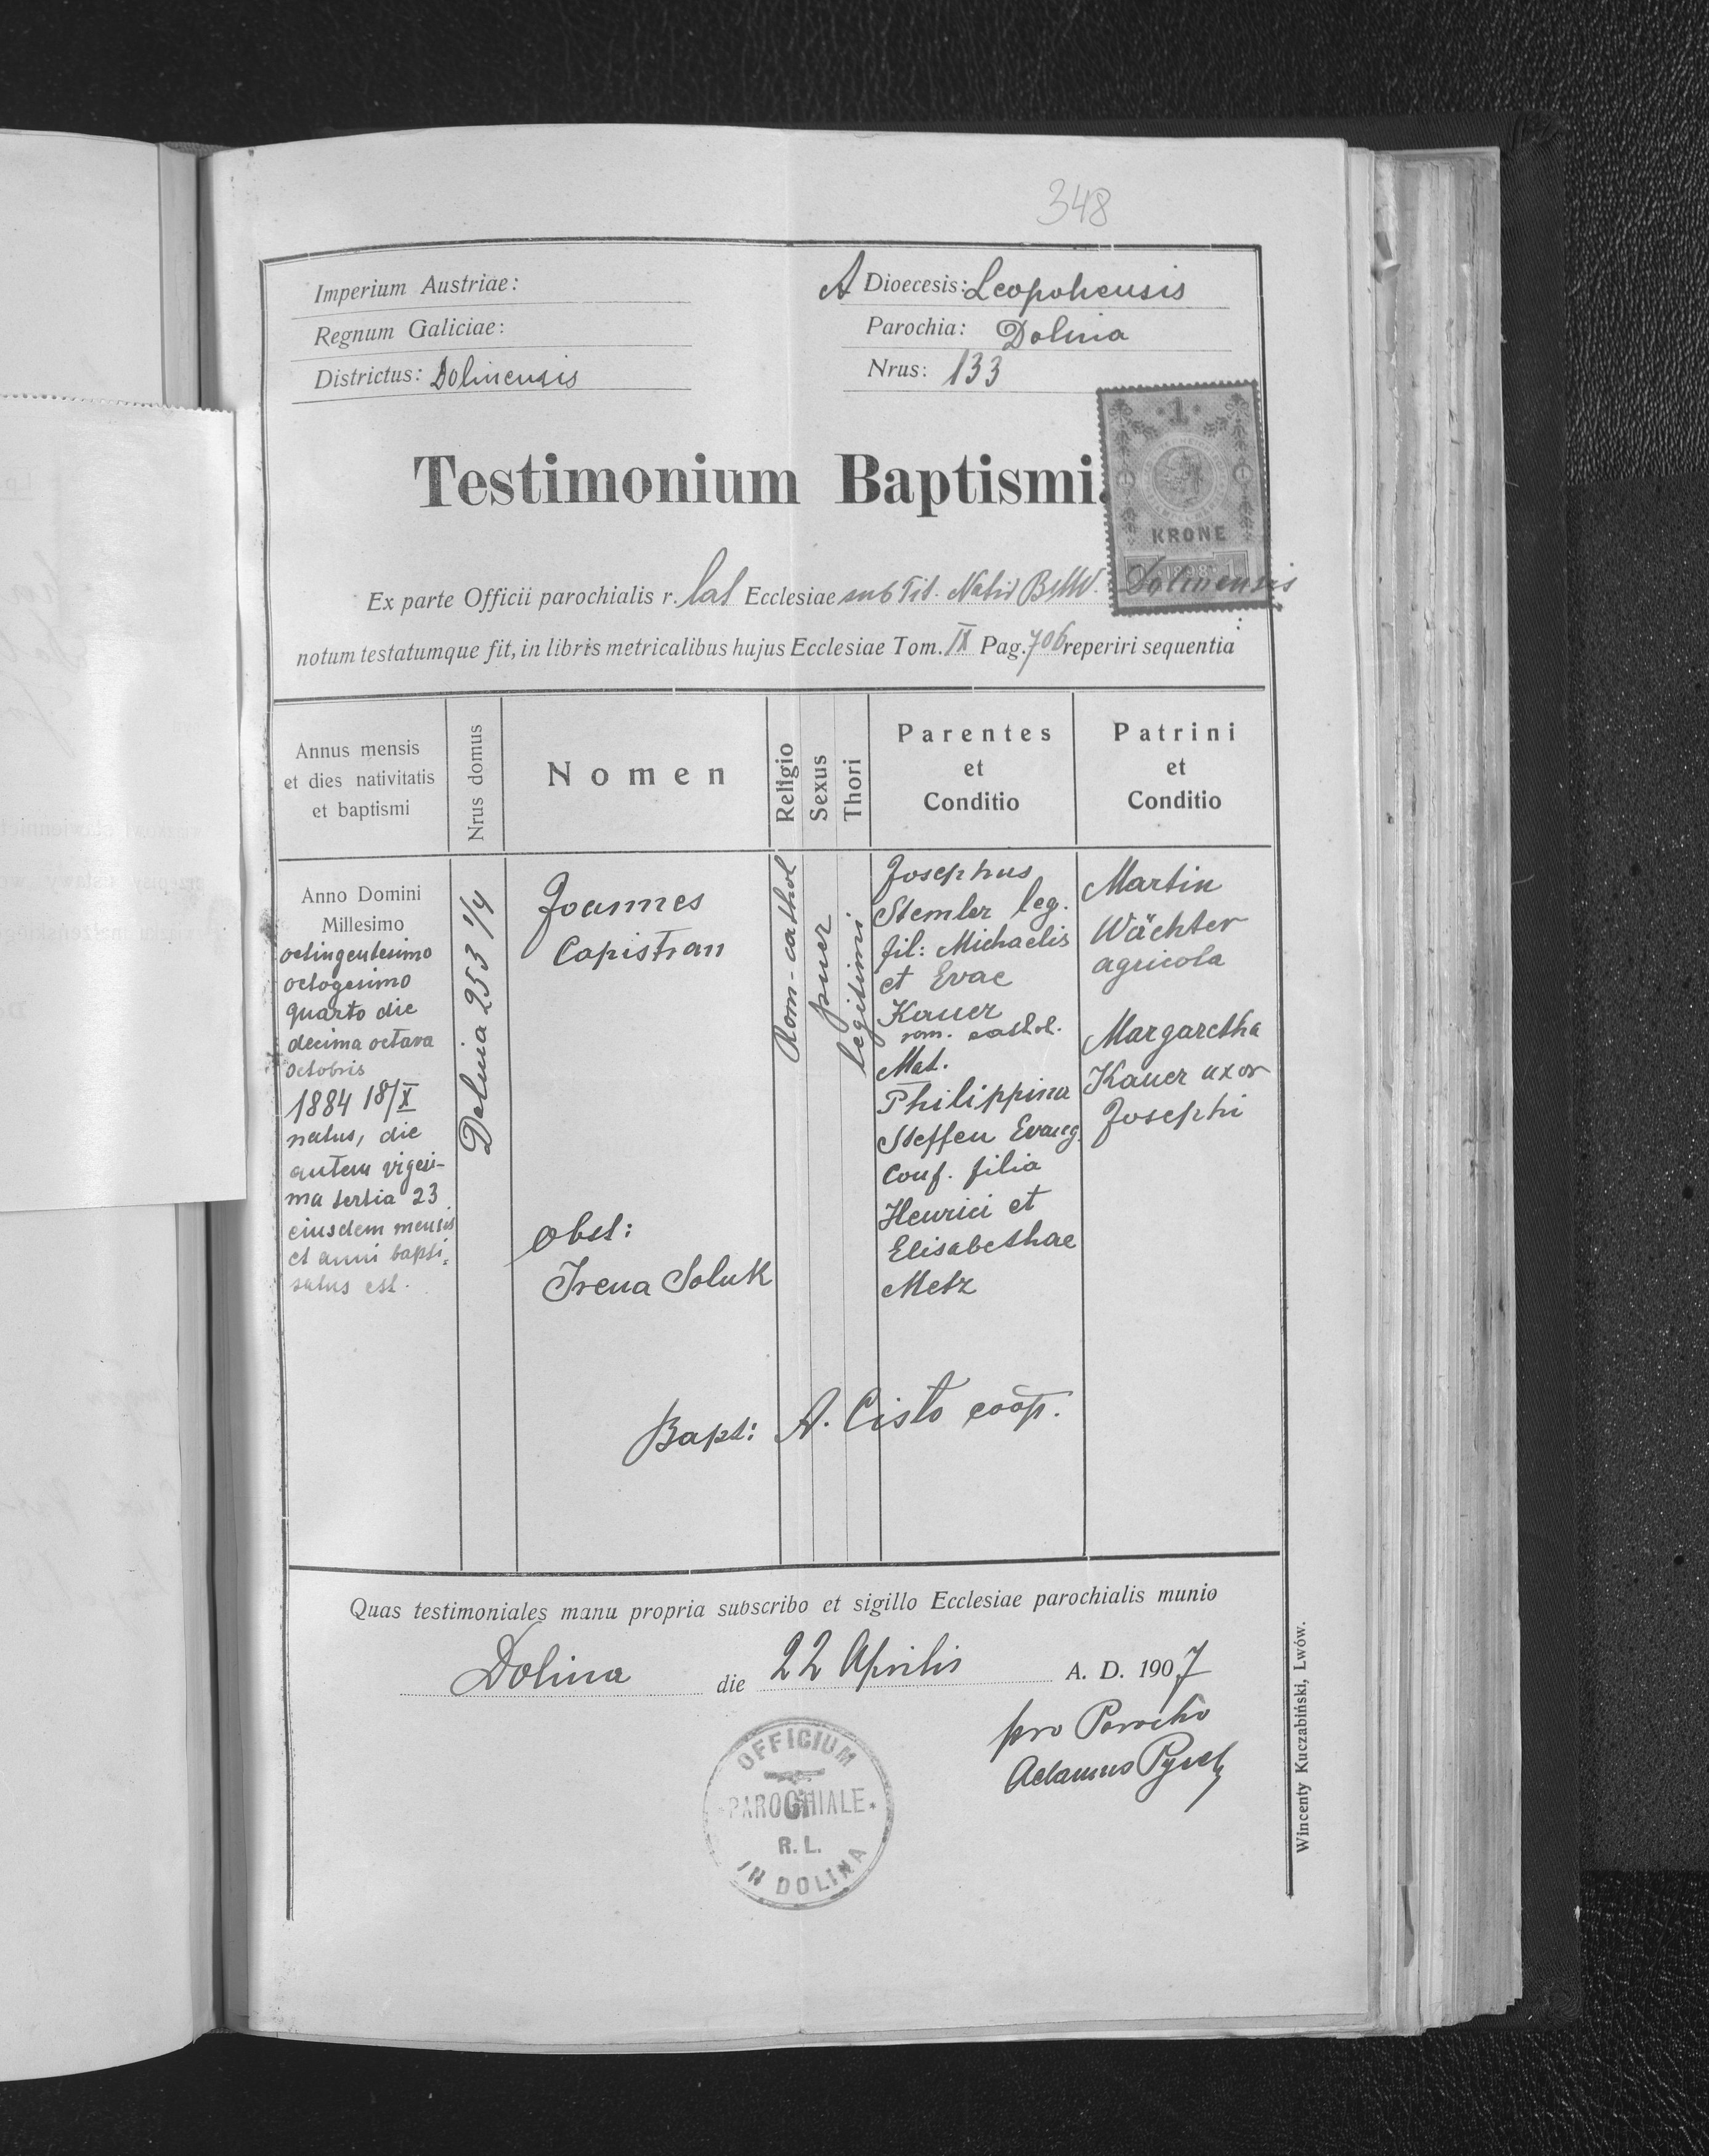 348
Imperium Austriae:
A Dioecesis: Leopoliensis
Regnum Galiciae:
Parochia: Dolina
Districtus: Dolinensis
Nrus: 133
1
KRONE
1898
Testimonium Baptismi.
Ex parte Officii parochialis r. lat Ecclesiae sub Tit. Nativ B.M.V. Dolinensis
notum testatumque fit, in libris metricalibus hujus Ecclesiae Tom. IX Pag. 706 reperiri sequentia:
Annus mensis
et dies nativitatis
et baptismi
Nrus domus
Nomen
Religio
Sexus
Thori
Parentes
et
Conditio
Patrini
et
Conditio
Anno Domini
Millesimo
octingentesimo
octogesimo
quarto die
decima octava
octobris
1884 18/X
natus, die
autem vigesi-
ma tertia 23
eiusdem mensis
et anni bapti-
satus est.
Dolina 253 1/4
Joannes
Capistran
Obst:
Irena Soluk
Rom-cathol
puer
legitimi
Josephus
Stemler leg.
fil: Michaelis
et Evae
Kauer
rom. cathol.
Mat.
Philippina
Steffen Evang.
Conf. filia
Henrici et
Elisabethae
Metz
Martin
Wächter
agricola
Margaretha
Kauer uxor
Josephi
Bapt: A. Cisto coop.
Quas testimoniales manu propria subscribo et sigillo Ecclesiae parochialis munio
Dolina die 22 Aprilis A. D. 1907
pro Parocho
Adamus
OFFICIUM
PAROCHIALE
R. L.
IN DOLINA
Wincenty Kuczabiński, Lwów.